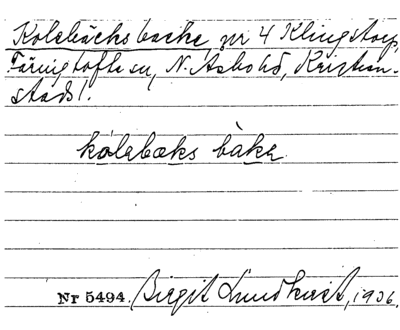 Kolebäcksbacke, nr 4 Klingstorp,
Färingtofta sn, N. Åsbo hd, Kristian-
stads l.
kolebæks bakə
Nr 5494. Birgit Lundkvist, 1936.